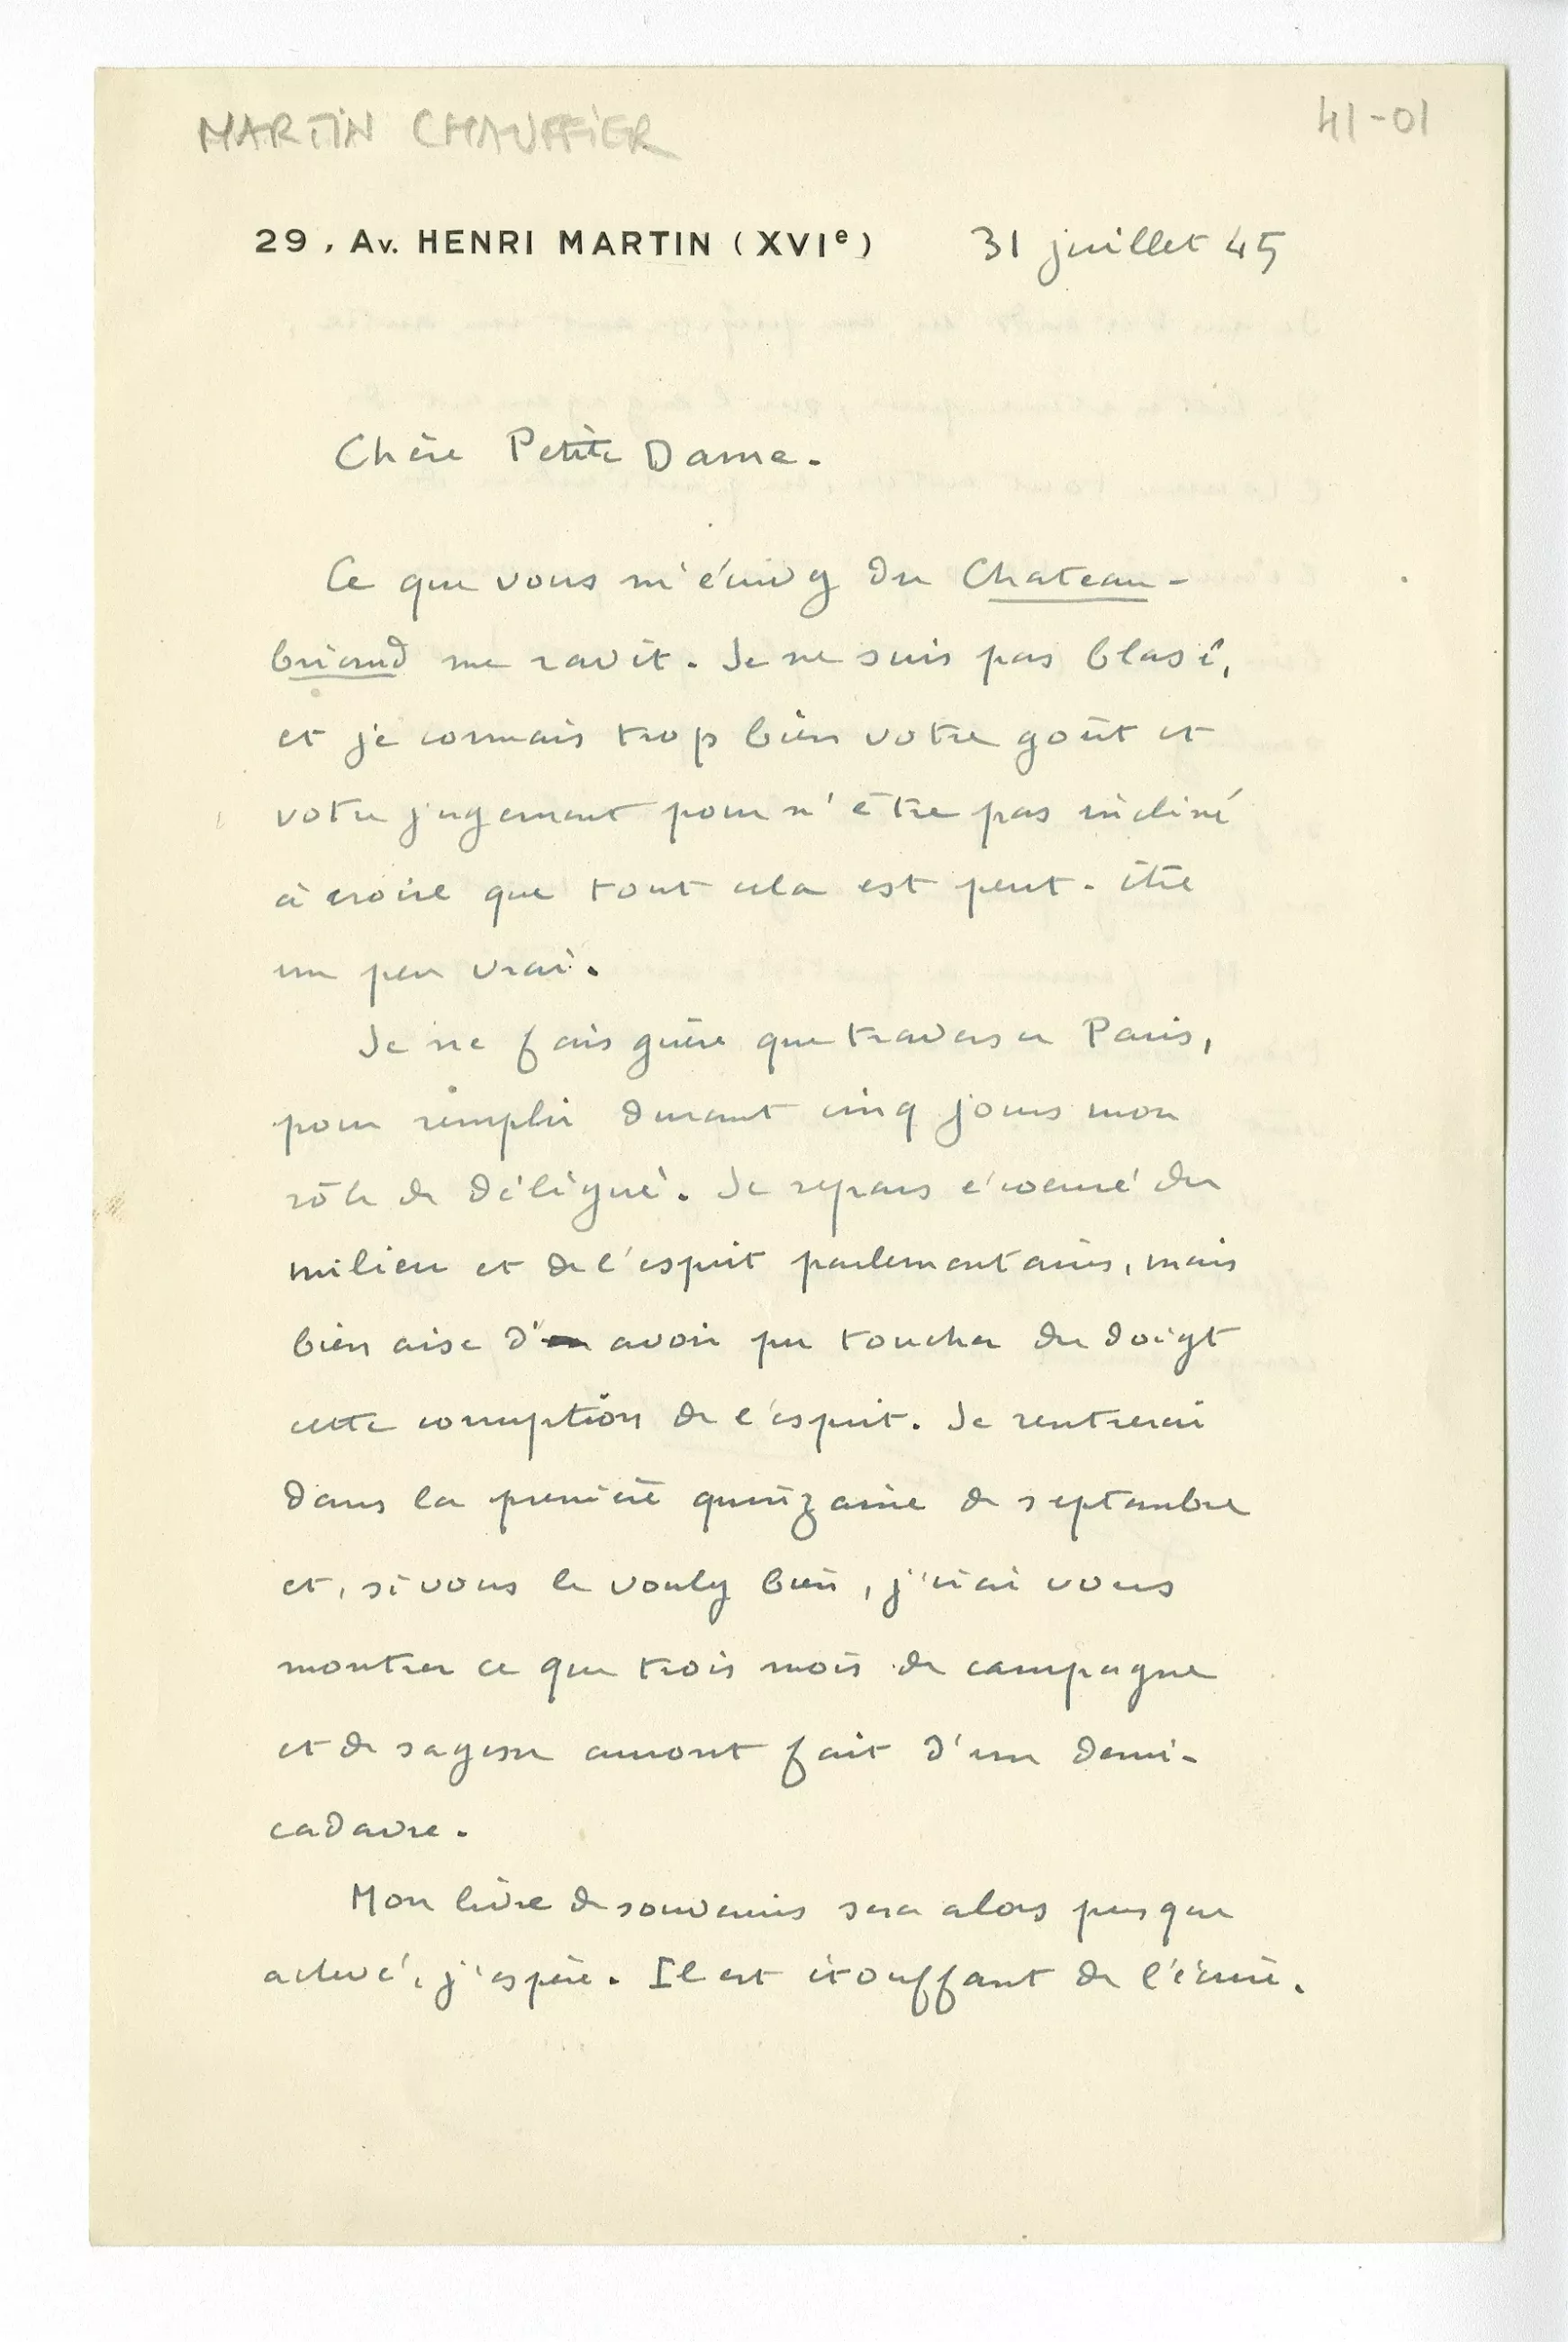 MARTIN CHAUFFIER 41-01
29, Av. HENRI MARTIN (XVIe) 31 juillet 45
Chère Petite Dame.
Ce que vous m'écrivez du Chateau-
briand me ravit. Je ne suis pas blasé,
et je connais trop bien votre goût et
votre jugement pour n'être pas incliné
à croire que tout cela est peut-être
un peu vrai.
Je ne fais guère que traverser Paris,
pour remplir durant cinq jours mon
rôle de délégué. Je repars écoeuré du
milieu et de l'esprit parlementaires, mais
bien aise d'avoir pu toucher du doigt
cette corruption de l'esprit. Je rentrerai
dans la première quinzaine de septembre
et, si vous le voulez bien, j'irai vous
montrer ce que trois mois de campagne
et de sagesse auront fait d'un demi-
cadavre.
Mon livre de souvenirs sera alors presque
achevé, j'espère. Il est étouffant de l'écrire.